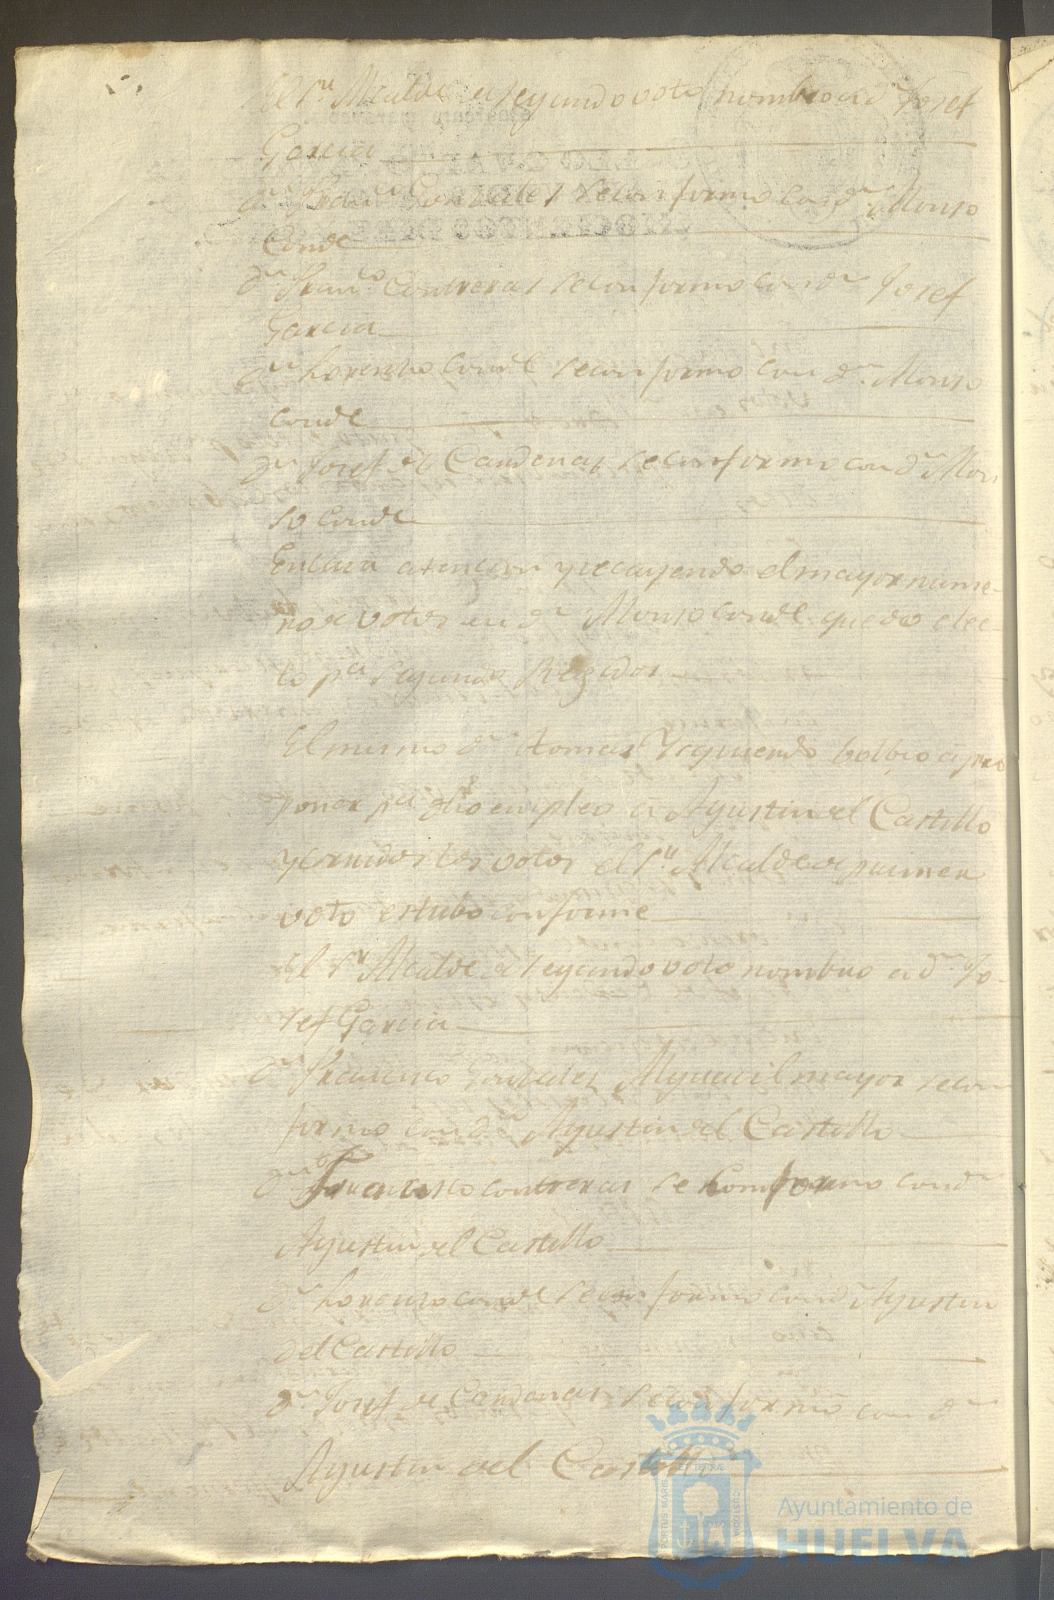 El Sr. Alcalde de segundo voto nombro a dn. Josef
Garcia
dn. Franco. Gonzales se conformo con dn. Alonso
Conde
dn. Franco. Contreras se conformo con dn. Josef
Garcia
dn. Lorenzo Conde se conformo con dn. Alonso
conde
dn. Josef de Cardenas se conformo con dn. Alon
so Conde
En cuia atencion y recayendo el mayor nume-
ro de votos en dn. Alonso conde quedo elec-
to pa. segundo Regidor
El mismo dn. tomas Yzquierdo bolbio a pro
poner pa. dho empleo a Agustin del Castillo
y corridos los votos el Sr. Alcalde de primer
voto estubo conforme
El Sr. Alcalde de segundo voto nombro a dn. Jo-
sef Garcia
dn. Francisco Gonzales Alguacil mayor se con
formo con dn. Agustin del Castillo
dn. Francisco contreras se comformo con dn.
Agustin del Castillo
dn. Lorenzo conde se conformo con dn. Agustin
del Castillo
dn. Josef de Cardenas se conformo con dn.
Agustin del Castillo
PORTUS MARIS
Ayuntamiento de
HUELVA